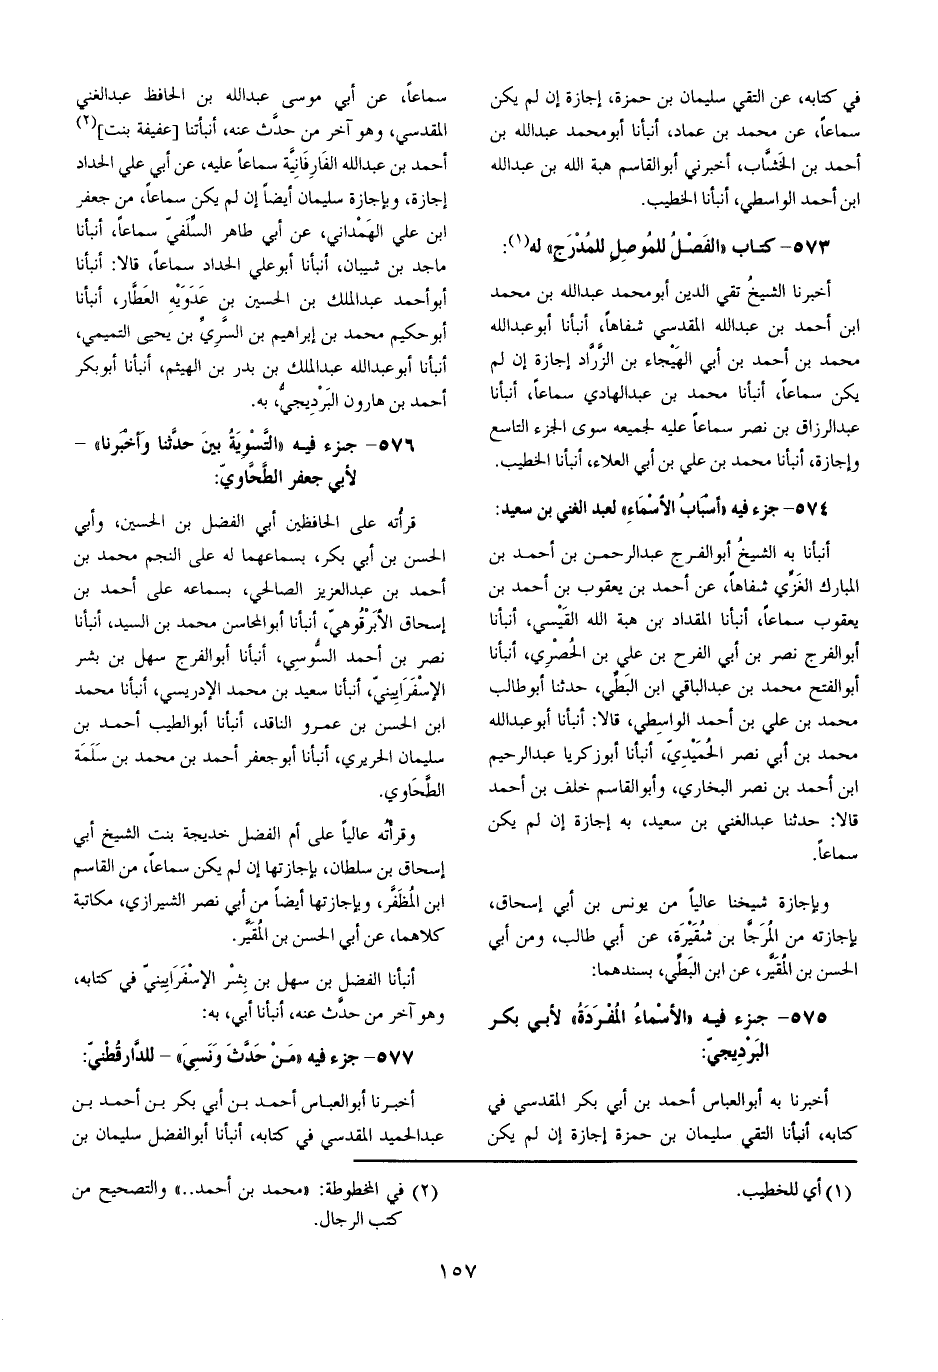 في كتابه، عن التقي سليمان بن حمزة، إجازة إن لم يكن
سماعاً، عن محمد بن عماد، أنبأنا أبومحمد عبدالله بن
أحمد بن الخَشَّاب، أخبرني أبوالقاسم هبة الله بن عبدالله
ابن أحمد الواسطي، أنبأنا الخطيب.
٥٧٣- كتاب «الفَصْلُ للمُوصِلِ للمُدْرَج» له(١):
أخبرنا الشيخُ تقي الدين أبومحمد عبدالله بن محمد
ابن أحمد بن عبدالله المقدسي شفاهاً، أنبأنا أبوعبدالله
محمد بن أحمد بن أبي الهَيْجاء بن الزَّرَّاد إجازة إن لم
يكن سماعاً، أنبأنا محمد بن عبدالهادي سماعاً، أنبأنا
عبدالرزاق بن نصر سماعاً عليه لجميعه سوى الجزء التاسع
وإجازة، أنبأنا محمد بن علي بن أبي العلاء، أنبأنا الخطيب.
٥٧٤- جزء فيه «أسْبَابُ الأسْمَاء» لعبد الغني بن سعيد:
أنبأنا به الشيخُ أبوالفرج عبدالرحمن بن أحمد بن
المبارك الغَزِّي شفاهاً، عن أحمد بن يعقوب بن أحمد بن
يعقوب سماعاً، أنبأنا المقداد بن هبة الله القَيْسي، أنبأنا
أبوالفرج نصر بن أبي الفرح بن علي بن الحُصْري، أنبأنا
أبوالفتح محمد بن عبدالباقي ابن البَطِّي، حدثنا أبوطالب
محمد بن علي بن أحمد الواسطي، قالا: أنبأنا أبوعبدالله
محمد بن أبي نصر الحُمَيْديّ، أنبأنا أبوزكريا عبدالرحيم
ابن أحمد بن نصر البخاري، وأبوالقاسم خلف بن أحمد
قالا: حدثنا عبدالغني بن سعيد، به إجازة إن لم يكن
سماعاً.
وبإجازة شيخنا عالياً من يونس بن أبي إسحاق،
بإجازته من المُرَجَّا بن شُقَيْرَة، عن أبي طالب، ومن أبي
الحسن بن المُقَيَّر، عن ابن البَطِّي، بسندهما:
٥٧٥- جزء فيه «الأسْماءُ المُفْرَدَةُ» لأبي بكر
البَرْدِيجيّ:
أخبرنا به أبوالعباس أحمد بن أبي بكر المقدسي في
كتابه، أنبأنا التقي سليمان بن حمزة إجازة إن لم يكن
سماعاً، عن أبي موسى عبدالله بن الحافظ عبدالغني
المقدسي، وهو آخر من حدَّث عنه، أنبأتنا [عفيفة بنت](٢)
أحمد بن عبدالله الفَارِفَانِيَّة سماعاً عليه، عن أبي علي الحداد
إجازة، وبإجازة سليمان أيضاً إن لم يكن سماعاً، من جعفر
ابن علي الهَمْداني، عن أبي طاهر السِّلَفيّ سماعاً، أنبأنا
ماجد بن شيبان، أنبأنا أبوعلي الحداد سماعاً، قالا: أنبأنا
أبوأحمد عبدالملك بن الحسين بن عَدَوَيْهِ العَطَّار، أنبأنا
أبوحكيم محمد بن إبراهيم بن السَّرِيِّ بن يحيى التميمي،
أنبأنا أبوعبدالله عبدالملك بن بدر بن الهيثم، أنبأنا أبوبكر
أحمد بن هارون البَرْدِيجيُّ، به.
٥٧٦- جزء فيه «التَّسْوِيَةُ بينَ حدَّثنا وأخْبَرنا» -
لأبي جعفر الطَّحَّاويّ:
قرأتُه على الحافظين أبي الفضل بن الحسين، وأبي
الحسن بن أبي بكر، بسماعهما له على النجم محمد بن
أحمد بن عبدالعزيز الصالحي، بسماعه على أحمد بن
إسحاق الأَبَرْقُوهيّ، أنبأنا أبوالمحاسن محمد بن السيد، أنبأنا
نصر بن أحمد السُّوسِي، أنبأنا أبوالفرج سهل بن بشر
الإسْفَرَايينيّ، أنبأنا سعيد بن محمد الإدريسي، أنبأنا محمد
ابن الحسن بن عمرو الناقد، أنبأنا أبوالطيب أحمد بن
سليمان الحريري، أنبأنا أبوجعفر أحمد بن محمد بن سَلَمَة
الطَّحَاوي.
وقرأتُه عالياً على أم الفضل خديجة بنت الشيخ أبي
إسحاق بن سلطان، بإجازتها إن لم يكن سماعاً، من القاسم
ابن المُظَفَّر، وبإجازتها أيضاً من أبي نصر الشيرازي، مكاتبة
كلاهما، عن أبي الحسن بن المُقَيَّر.
أنبأنا الفضل بن سهل بن بِشْر الإسْفَرَايينيّ في كتابه،
وهو آخر من حدَّث عنه، أنبأنا أبي، به:
٥٧٧- جزء فيه «مَنْ حَدَّثَ وَنَسِيَ» - للدَّارقُطْنيّ:
أخبرنا أبوالعباس أحمد بن أبي بكر بن أحمد بن
عبدالحميد المقدسي في كتابه، أنبأنا أبوالفضل سليمان بن
(١) أي للخطيب.
(٢) في المخطوطة: «محمد بن أحمد..» والتصحيح من
كتب الرجال.
١٥٧